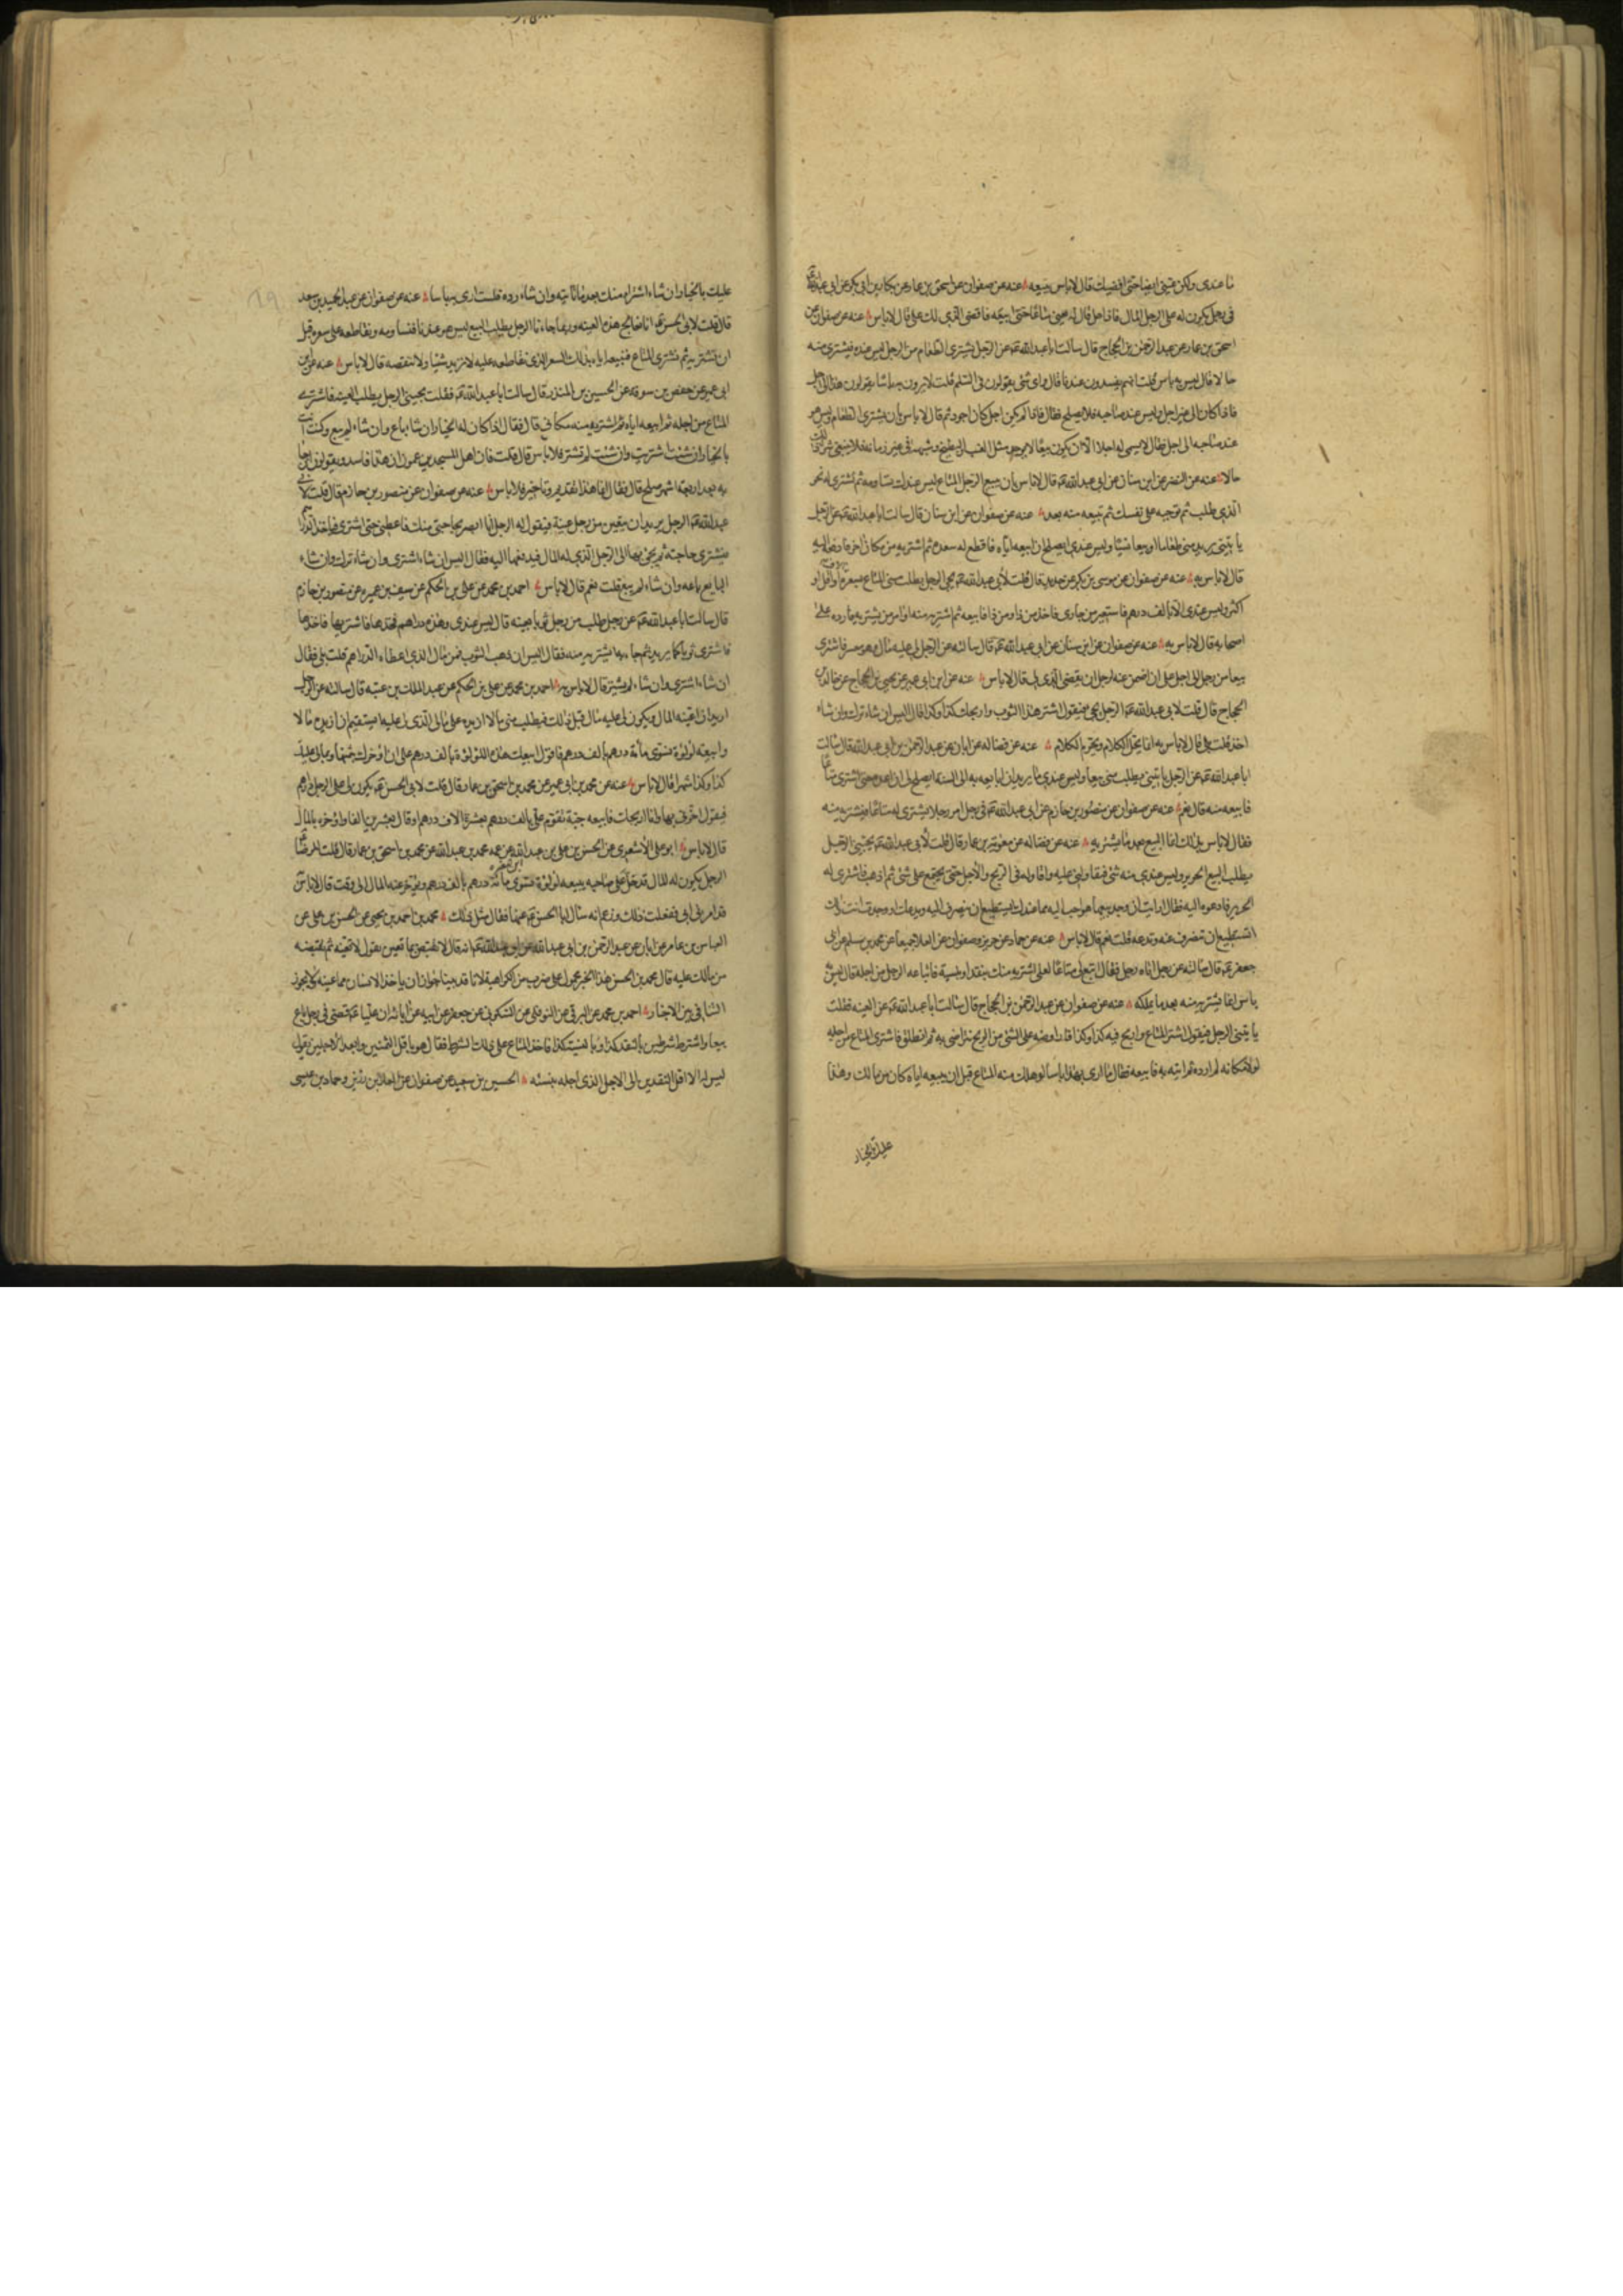 ما عندى ولكن عينى ايضا حتى اقضيك قال لا باس ببيعه عنه عن صفوان عن اسحق بن عمار عن بكار بن ابى بكر عن ابى عبد الله
فى رجل يكون له على الرجل المال فاذا حل قال له بعنى متاعا حتى ابيعه فاقضى الذى لك على قال لا باس عنه عن صفوان عن
اسحق بن عمار عن عبد الرحمن بن الحجاج قال سالت ابا عبد الله عن الرجل يشترى الطعام من الرجل ليس عنده فيشترى منه
حالا قال ليس به باس قلت انهم يفسدونه عندنا قال واى شئ يقولون فى السلم قلت لا يرون به باسا يقولون هذا الى اجل
فاذا كان الى غير اجل وليس عند صاحبه فلا يصلح فقال فاذا لم يكن اجل كان اجود ثم قال لا باس بان يشترى الطعام وليس هو
عند صاحبه الى اجل فقال لا يسمى له اجلا الا ان يكون بيعا لا يوجد مثل العنب البطيخ وشبهه فى غير زمانه فلا ينبغى شراء ذلك
حالا عنه عن النضر عن ابن سنان عن ابى عبد الله قال لا باس بان يبيع الرجل المتاع ليس عندك تساومه ثم تشترى له نحو
الذى طلب ثم توجبه على نفسك ثم تبيعه منه بعد عنه عن صفوان عن ابن سنان قال سالت ابا عبد الله عن الرجل
ياتينى يريد منى طعاما او بيعا نسيئا وليس عندى ايصلح ان ابيعه اياه فاقطع له سعره ثم اشتريه من مكان اخر فادفعه اليه
قال لا باس به عنه عن صفوان عن موسى بن بكر عن حديد قال قلت لابى عبد الله يجئ الرجل يطلب منى المتاع بعشرة الاف او اقل او
اكثر وليس عندى الا بالف درهم فاستعير من جارى فاخذ من ذا ومن ذا فابيعه ثم اشتريه منه او امر من يشتريه فارده على
اصحابه قال لا باس به عنه عن صفوان عن ابن سنان عن ابى عبد الله قال سالته عن الرجل لى عليه مال وهو معسر فاشترى
بيعا من رجل الى اجل على ان اضمن عنه لرجل ان يقضى الذى لى قال لا باس عنه عن ابن ابى عمير عن يحيى بن الحجاج عن خالد بن
الحجاج قال قلت لابى عبد الله الرجل يجئ فيقول اشتر هذا الثوب واربحك كذا وكذا فقال اليس ان شاء ترك وان شاء
اخذ قلت بلى قال لا باس به انما يحل الكلام ويحرم الكلام عنه عن فضاله عن ابان عن عبد الرحمن بن ابى عبد الله قال سالت
ابا عبد الله عن الرجل ياتينى يطلب منى بيعا وليس عندى ما يريد ان ابايعه به الى السنة ايصلح لى ان اعده حتى اشترى متاعا
فابيعه منه قال نعم عنه عن صفوان عن منصور بن حازم عن ابى عبد الله فى رجل امر رجلا يشترى له متاعا فيشتريه منه
فقال لا باس بذلك انما البيع بعد ما يشتريه عنه عن فضاله عن معوية بن عمار قال قلت لابى عبد الله يجيئنى الرجل
يطلب البيع الحرير وليس عندى منه شئ فيقاولنى عليه واقاوله فى الربح والاجل حتى نجتمع على شئ ثم اذهب فاشترى له
الحرير فادعوه اليه فقال ارايت ان وجد بيعا هو احب اليه مما عندك ايستطيع ان ينصرف اليه ويدعك او وجدت انت ذلك
اتستطيع ان تنصرف عنه وتدعه قلت نعم قال لا باس عنه عن حماد عن حريز وصفوان عن العلا جميعا عن محمد بن مسلم عن ابى
جعفر قال سالته عن رجل اتاه رجل فقال ابتع لى متاعا لعلى اشتريه منك بنقد او بنسية فابتاعه الرجل من اجله قال ليس به
باس انما يشتريه منه بعد ما يملكه عنه عن صفوان عن عبد الرحمن بن الحجاج قال سالت ابا عبد الله عن العينه فقلت
ياتينى الرجل فيقول اشتر المتاع واربح فيه كذا وكذا فاراوضه على الشئ من الربح نتراضى به ثم انطلق فاشترى المتاع من اجله
لولا مكانه لم ارده ثم اتيه به فابيعه فقال ما ارى بهذا باسا لو هلك منه المتاع قبل ان تبيعه اياه كان من مالك وهذا
عليك بالخيار
عليك بالخيار ان شاء اشتراه منك بعد ما تاتيه وان شاء رده فلست ارى به باسا عنه عن صفوان عن عبد الحميد بن سعد
قال قلت لابى الحسن انا نعالج هذه العينه وربما جاءنا الرجل يطلب البيع ليس هو عندنا فنساومه ونقاطعه على سعره قبل
ان نشتريه ثم نشترى المتاع فنبيعه اياه بذلك السعر الذى نقاطعه عليه لا نزيد شيئا ولا ننقصه قال لا باس عنه عن ابن
ابى عمير عن حفص بن سوقه عن الحسين بن المنذر قال سالت ابا عبد الله فقلت يجيئنى الرجل يطلب العينه فاشترى
المتاع من اجله ثم ابيعه اياه ثم اشتريه منه مكانى قال فقال اذا كان له الخيار ان شاء باع وان شاء لم يبع وكنت انت
بالخيار ان شئت اشتريت وان شئت لم تشتر فلا باس قال قلت فان اهل المسجد يزعمون ان هذا فاسد ويقولون ان جاء
به بعد اربعة اشهر صلح قال فقال انما هذا تقديم وتاخير فلا باس عنه عن صفوان عن منصور بن حازم قال قلت لابى
عبد الله الرجل يريد ان يتعين من رجل عينة فيقول له الرجل انا ابصر بحاجتى منك فاعطنى حتى اشترى فياخذ الدراهم
فيشترى حاجته ثم يجئ بها الى الرجل الذى له المال فيدفعها اليه فقال اليس ان شاء اشترى وان شاء ترك وان شاء
البايع باعه وان شاء لم يبع قلت نعم قال لا باس احمد بن محمد عن على بن الحكم عن سيف بن عميره عن منصور بن حازم
قال سالت ابا عبد الله عن رجل طلب من رجل ثوبا بعينه قال ليس عندى وهذه دراهم فخذها فاشتر بها فاخذها
فاشترى ثوبا كما يريد ثم جاء به ليشتريه منه فقال اليس ان ذهب الثوب فمن مال الذى اعطاه الدراهم قلت بلى فقال
ان شاء اشترى وان شاء لم يشتر قال لا باس به احمد بن محمد عن على بن الحكم عن عبد الملك بن عتبه قال سالته عن الرجل
اريد ان اعينه المال ويكون لى عليه مال قبل ذلك فيطلب منى مالا ازيده على مالى الذى لى عليه ايستقيم ان ازيده مالا
وابيعه لؤلؤة تسوى مأة درهم بالف درهم فاقول ابيعك هذه اللؤلؤة بالف درهم على ان اؤخرك بثمنها وبمالى عليك
كذا وكذا شهرا قال لا باس عنه عن محمد بن ابى عمير عن محمد بن اسحق بن عمار قال قلت لابى الحسن يكون لى على الرجل دراهم
فيقول اخرنى بها وانا اربحك فابيعه جبة تقوم على بالف درهم بعشرة الاف درهم او قال بعشرين الفا واؤخره بالمال
قال لا باس ابو على الاشعرى عن الحسن بن على بن عبد الله عن عمه محمد بن عبد الله عن محمد بن اسحق بن عمار قال قلت للرضا
الرجل يكون له المال قد حل على صاحبه يبيعه لؤلؤة تسوى مأة درهم بالف درهم ويؤخر عنه المال الى وقت قال لا باس
قد امرنى ابى ففعلت ذلك وزعم انه سال ابا الحسن عنها فقال مثل ذلك محمد بن احمد بن يحيى عن الحسن بن على عن
العباس بن عامر عن ابان عن عبد الرحمن بن ابى عبد الله عن ابى عبد الله انه قال لا تقبض مما تعين يقول لا تعينه ثم تقبضه
من مالك عليه قال محمد بن الحسن هذا الخبر محمول على ضرب من الكراهية لانا قد بينا جواز ان ياخذ الانسان مما عينه ولا يجوز
التنافى بين الاخبار احمد بن محمد عن البرقى عن النوفلى عن السكونى عن جعفر عن ابيه عن آبائه ان عليا قضى فى رجل باع
بيعا واشترط شرطين بالنقد كذا وبالنسية كذا فاخذ المتاع على ذلك الشرط فقال هو باقل الثمنين وابعد الاجلين يقول
ليس له الا اقل النقدين الى الاجل الذى اجله بنسئه الحسين بن سعيد عن صفوان عن العلا بن رزين وحماد بن عيسى